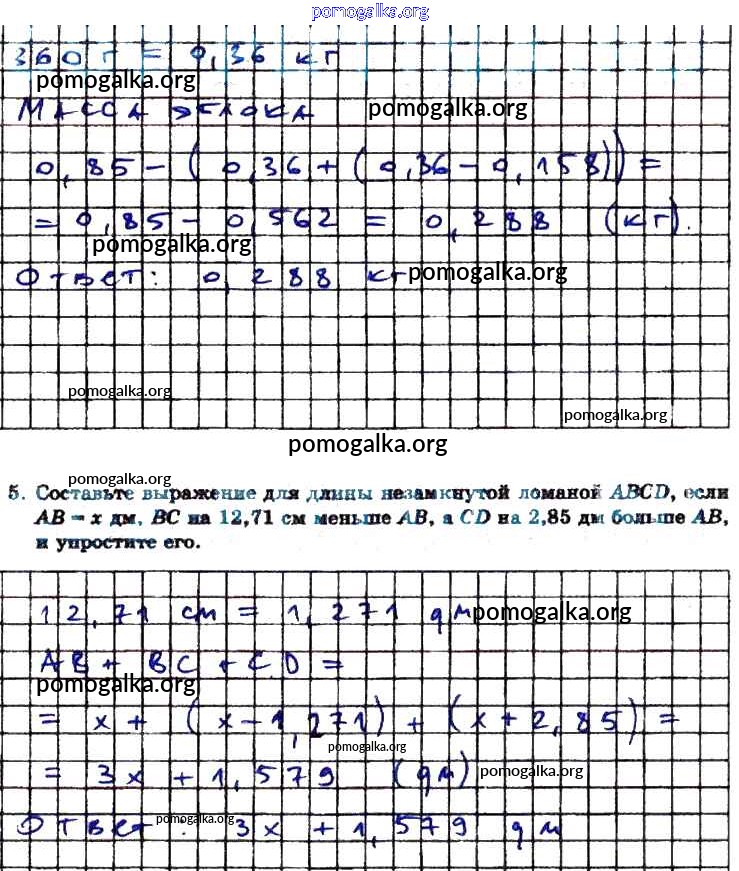 pomogalka.org
360 г = 0,36 кг
pomogalka.org
Масса яблока pomogalka.org
0,85 - (0,36 + (0,36 - 0,158)) =
= 0,85 - 0,562 = 0,288 (кг).
pomogalka.org
Ответ: 0,288 кг pomogalka.org
pomogalka.org
pomogalka.org
pomogalka.org
pomogalka.org
5. Составьте выражение для длины незамкнутой ломаной ABCD, если
AB = x дм, BC на 12,71 см меньше AB, а CD на 2,85 дм больше AB,
и упростите его.
12,71 см = 1,271 дм pomogalka.org
AB + BC + CD =
pomogalka.org
= x + (x - 1,271) + (x + 2,85) =
pomogalka.org
= 3x + 1,579 (дм) pomogalka.org
Ответ: pomogalka.org 3x + 1,579 дм